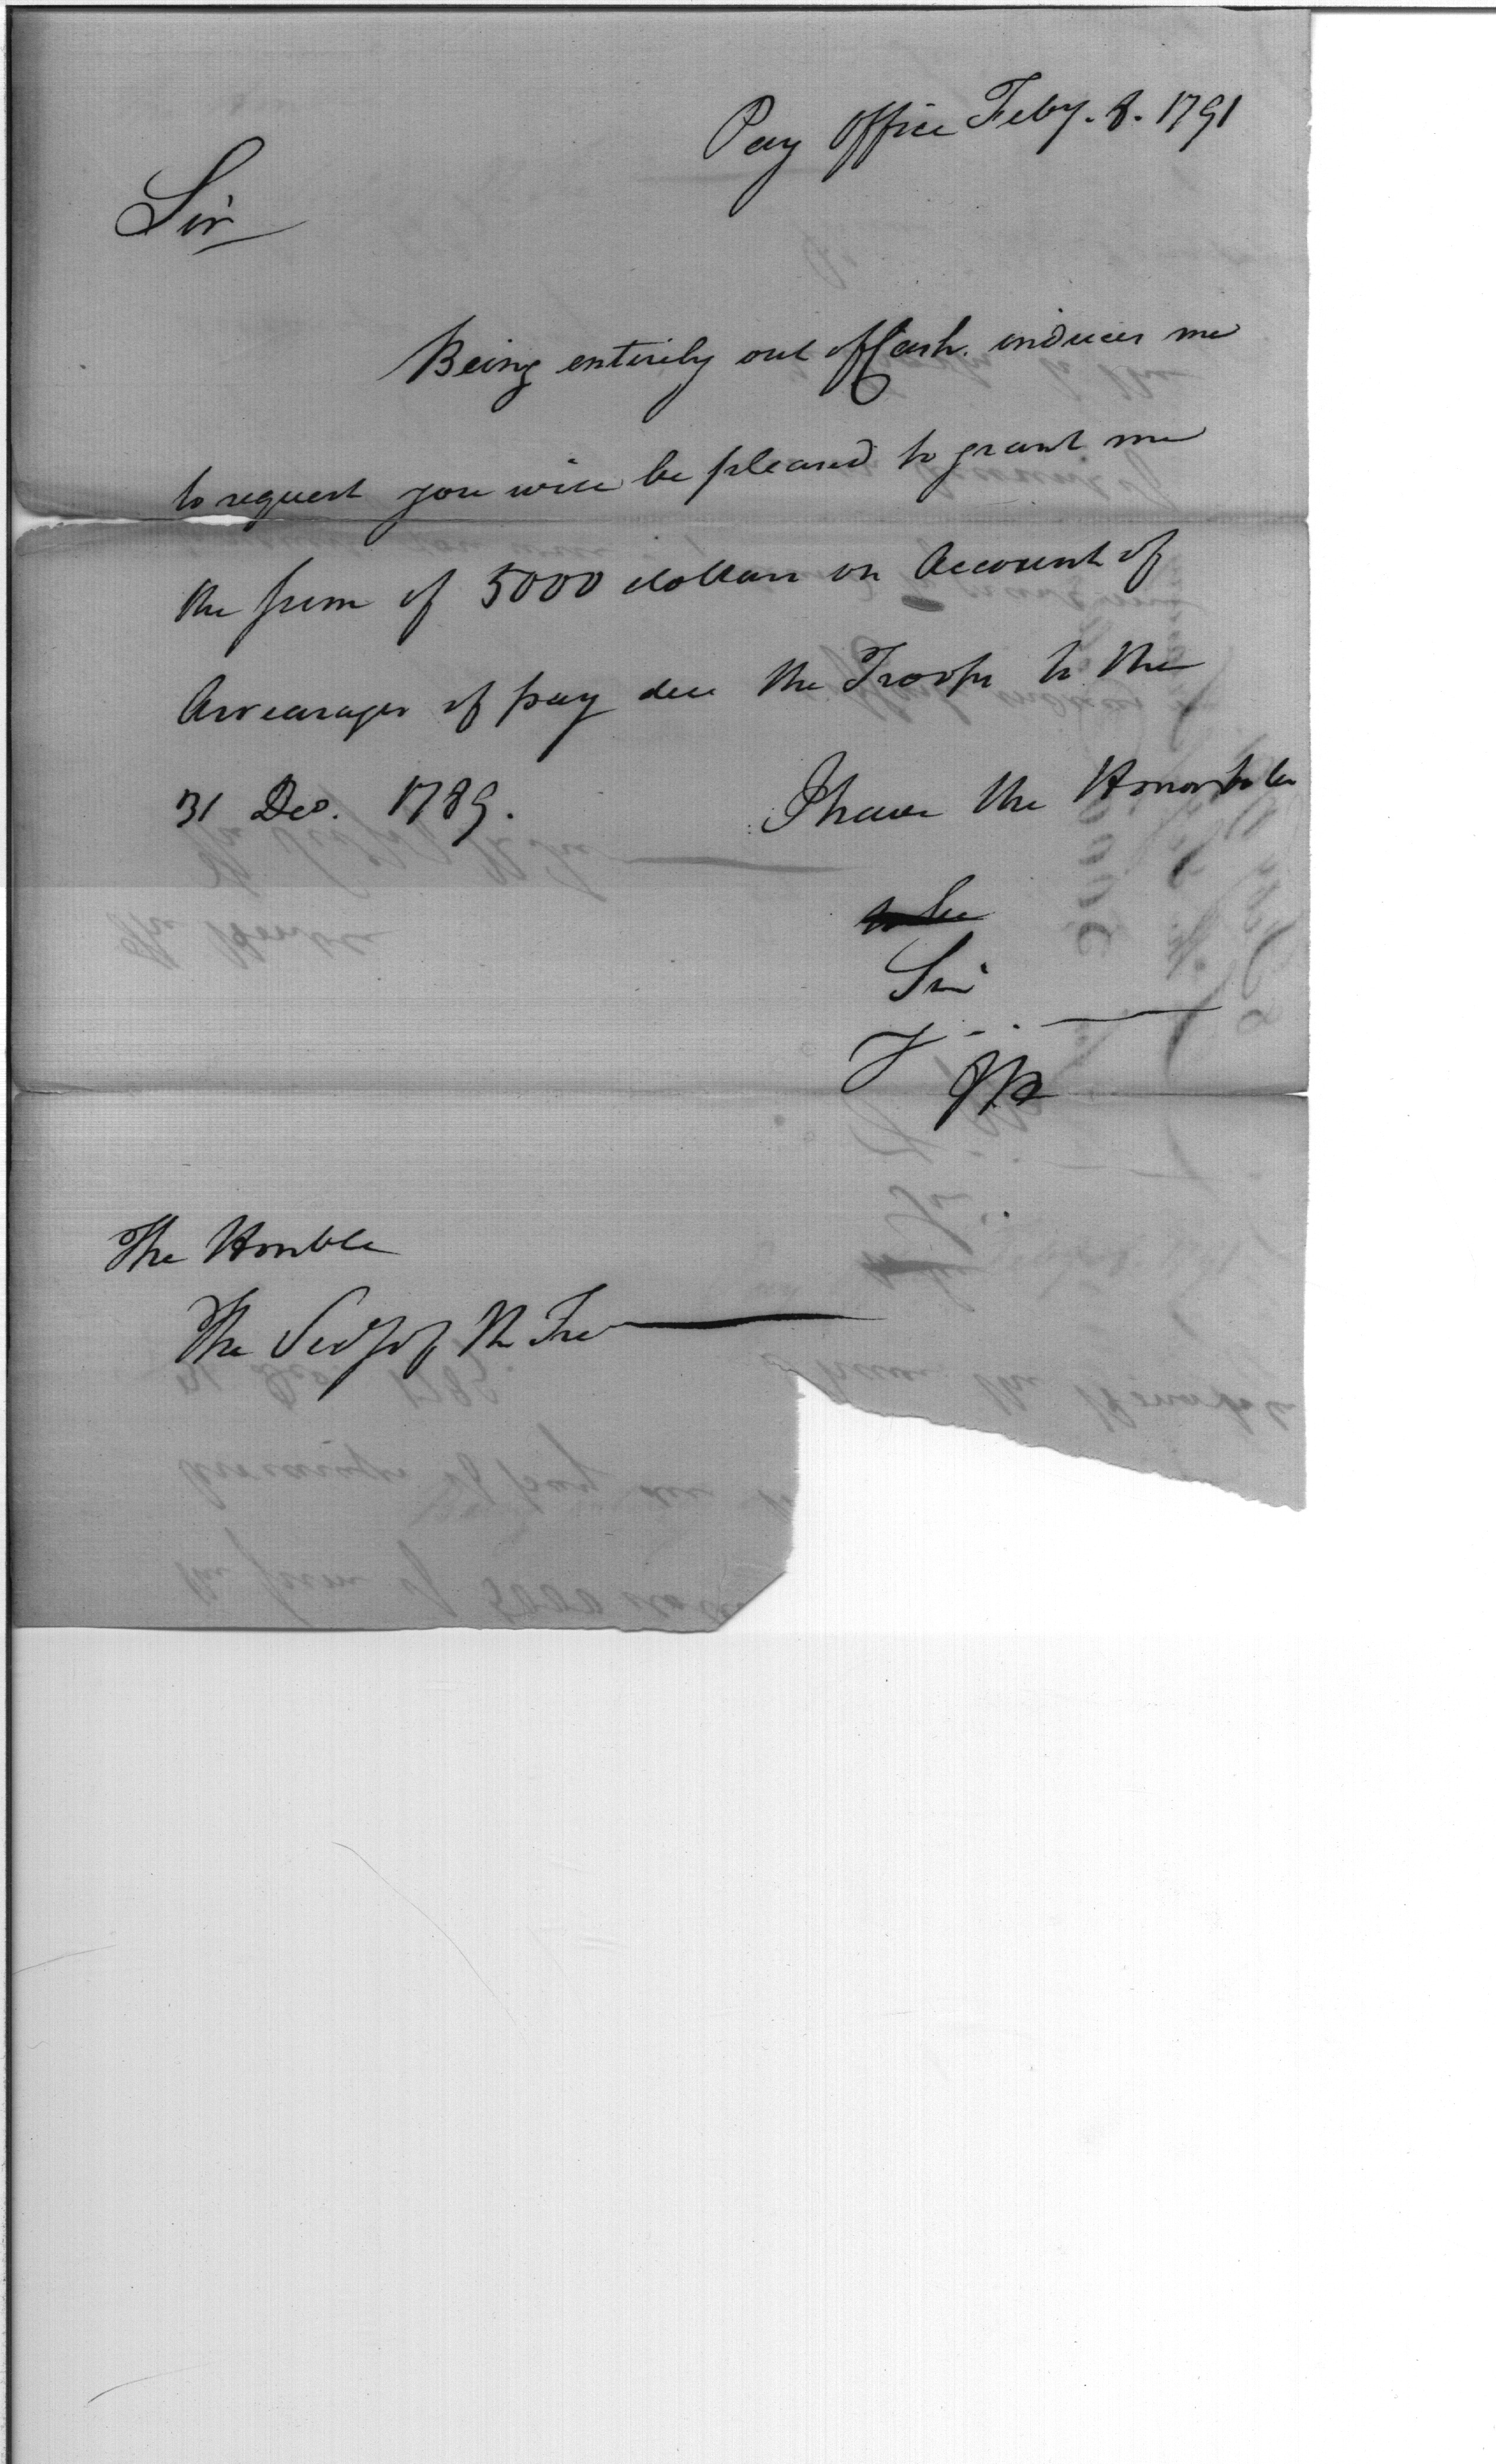 Pay Office Feby. 8. 1791
Sir
Being entirely out of Cash. induces me
to request you will be pleased to grant me
the sum of 5000 dollars on Account of
Arrearages of pay due the Troops to the
31 Dec. 1789. I have the Honor to be
to be
Sir
Y - . —
The Honble
The Secy of the Tre—